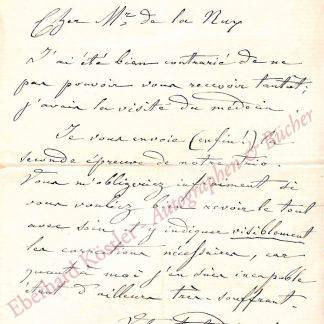 Cher Mr de la Nux
J'ai été bien contrarié de ne
pas pouvoir vous recevoir tantôt;
j'avais la visite du médecin
Je vous envoie (enfin!) la
seconde épreuve de notre trio.
Vous m'obligeriez infiniment si
vous vouliez bien revoir le tout
avec soin et y indiquer visiblement
les corrections nécessaires, car
quant à moi j'en suis incapable
étant d'ailleurs très-souffrant.
Eberhard Köstler - Autographen & Bücher